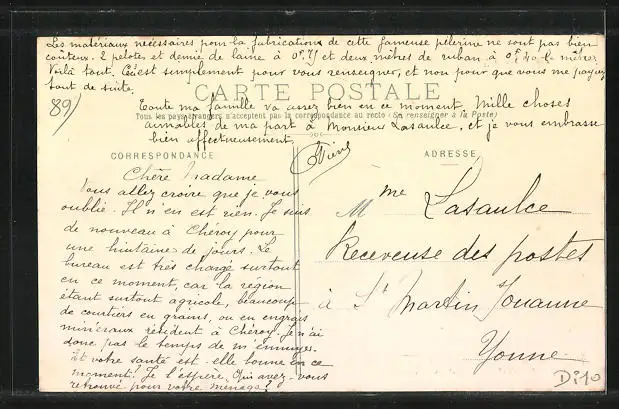 Les matériaux nécessaires pour la fabrication de cette fameuse pélerine ne sont pas bien
coûteux. 2 pelotes et demie de laine à 0f.75 et deux mètres de ruban à 0f.40 le mètre.
Voilà tout. C'est simplement pour vous renseigner, et non pour que vous me payiez
tout de suite.
CARTE POSTALE
89/
Toute ma famille va assez bien en ce moment. Mille choses
Tous les pays étrangers n'acceptent pas la correspondance au recto (Se renseigner à la Poste)
aimables de ma part à Monsieur Lasaulce, et je vous embrasse
bien affectueusement.
CORRESPONDANCE
Chère Madame
Vous allez croire que je vous
oublie. Il n'en est rien. Je suis
de nouveau à Chéroy pour
une huitaine de jours. Le
bureau est très chargé surtout
en ce moment, car la région
étant surtout agricole, beaucoup
de courtiers en grains, ou en engrais
minéraux résident à Chéroy. Je n'ai
donc pas le temps de m'ennuyer.
Et votre santé est-elle bonne en ce
moment. Je l'espère. Avez-vous
retrouvé pour votre ménage?
ADRESSE
Mme Lasaulce
Receveuse des postes
à St Martin s/ Ouanne
Yonne
D:10